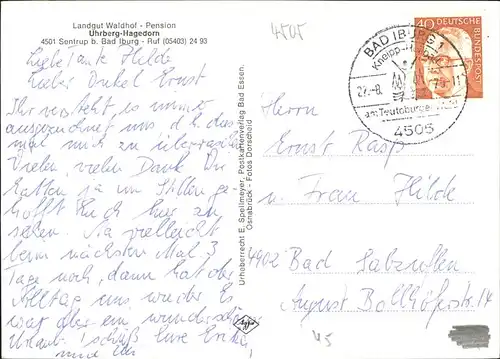 Landgut Waldhof - Pension
Uhrberg-Hagedorn
4501 Sentrup b. Bad Iburg - Ruf (05403) 24 93
4505
Liebe Tante Hilde
Lieber Onkel Ernst
Ihr versteht es immer
ausgezeichnet uns d. h. das
mal mich zu überraschen
Vielen, vielen Dank. Wir
hatten ja im Stillen ge-
hofft Euch hier zu
sehen. Na vielleicht
beim nächsten Mal. 3
Tage noch, dann hat der
Alltag uns wieder. Es
war aber ein wunderschöner
Urlaub. Tschüß Eure Erika
und
Urheberrecht E. Spellmeyer, Postkartenverlag Bad Essen.
Osnabrück - Fotos Dorscheid
Agfa
BAD IBURG 1
Kneipp-
27.-8. 75-11
am Teutoburger Wald
4505
40
DEUTSCHE
BUNDESPOST
Herrn
Ernst Rasp
u. Frau Hilde
4902 Bad Salzuflen
August Bollhöferstr. 14
45